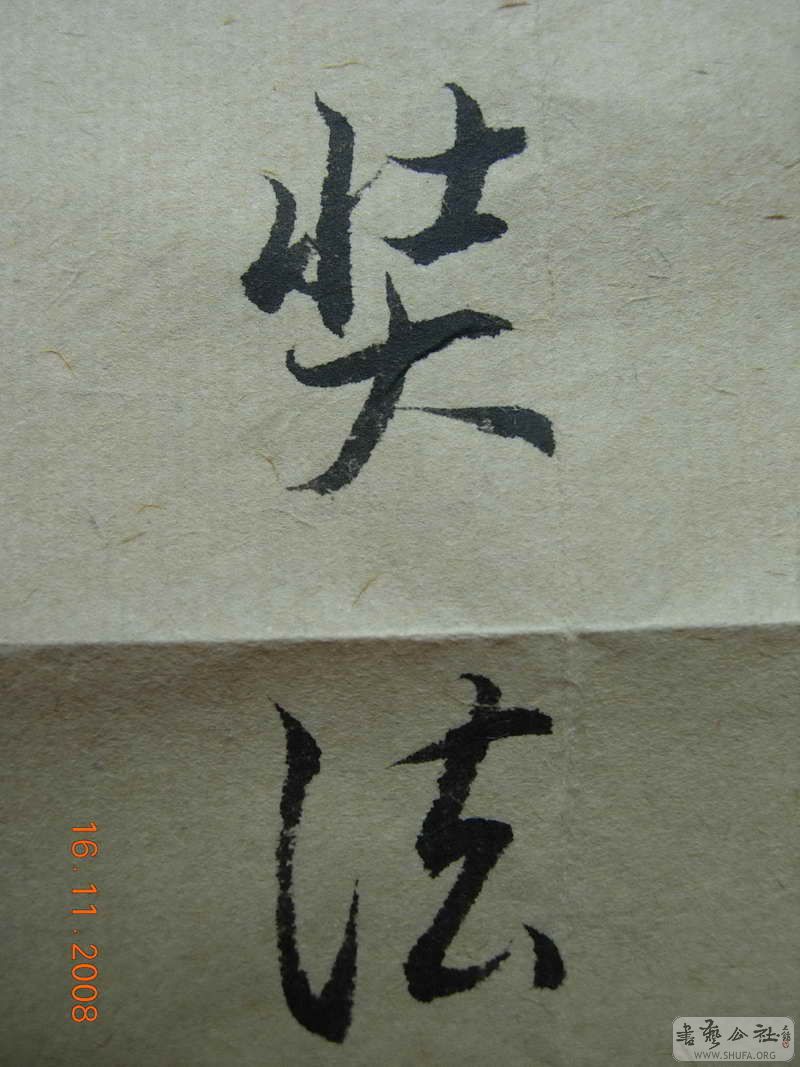 奘
法
16.11.2008
書藝公社
WWW.SHUFA.ORG